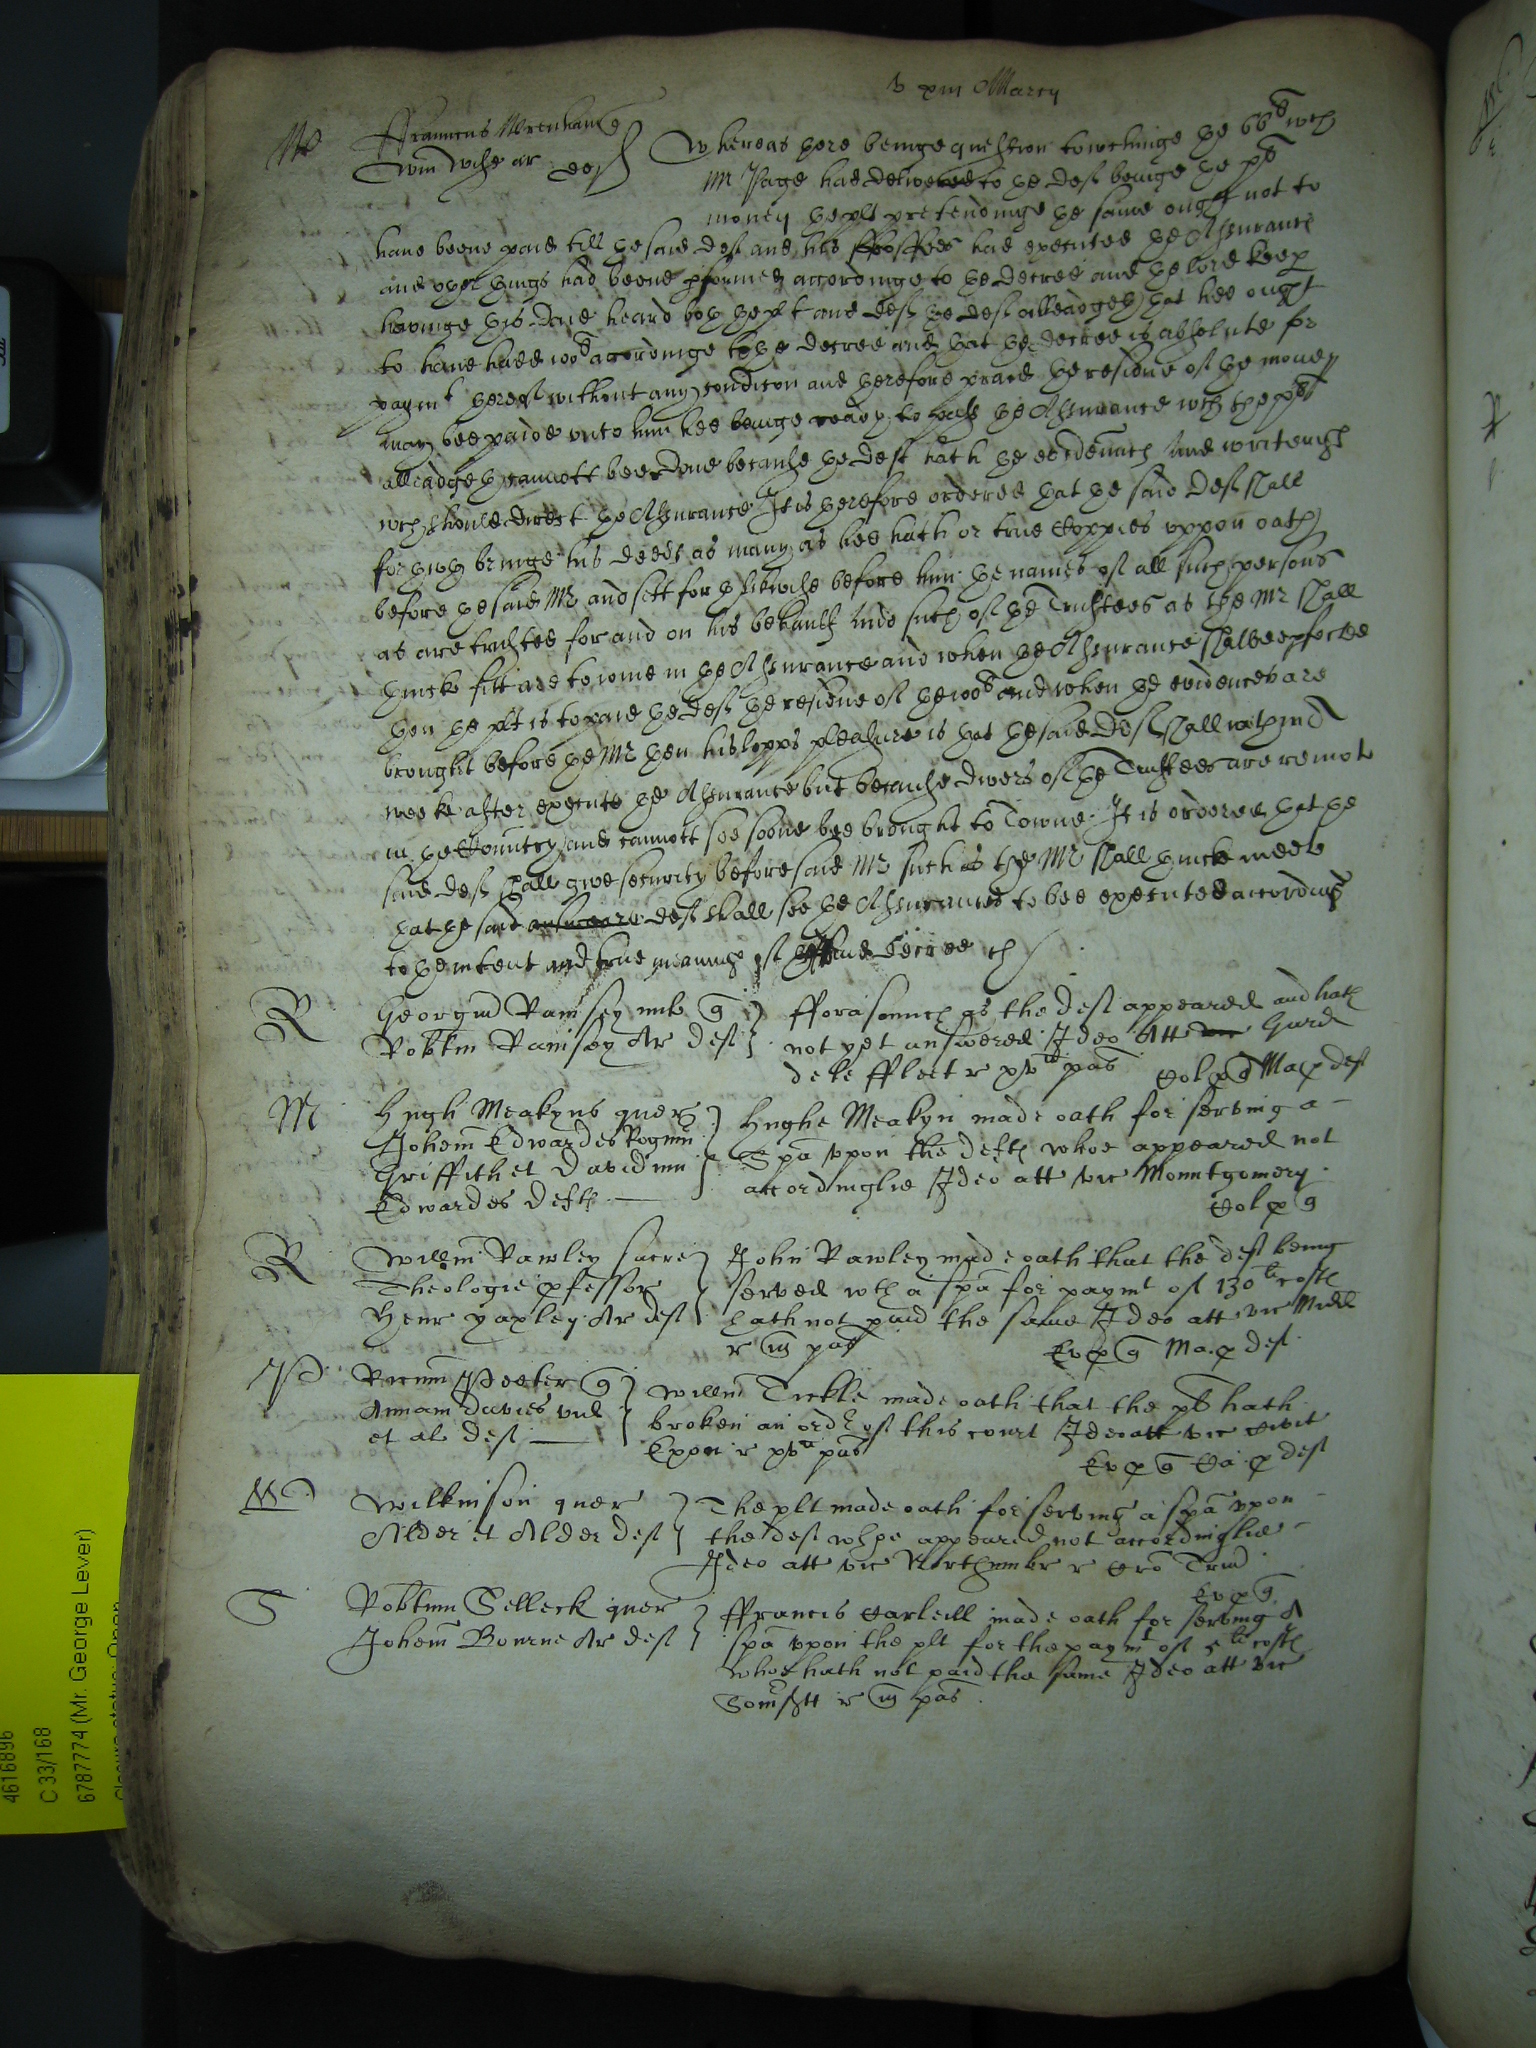 v xiii Marcij
W
Franncus Wrenham q
Whereas there beinge question towchinge the 66li wch
Mr Page had delivered to the deft beinge the pte
money the plt pretendinge the same ought not to
have beene paid till the said deft and his ffeoffees had executed the Assurance
and other things had beene pformed accordinge to the decree and the lord keep
havinge this daie heard both the plt and deft the deft alleadgeth that hee ought
to have hadd accordinge to the decree and that the decree is absolute for
paymt thereof without any condicon and therefore praied the residue of the money
may bee paide unto him hee beinge ready to the Assurance wch the plt
alleadgeth cannott bee done because the deft hath the evidences and writengs
wch should direct the Assurance It is therefore ordered that the said deft shall
forthwth bringe his deeds as many as hee hath or true Coppies uppon oath
before the said Mr and sett forth likewise before him the names of all such persons
as are trusted for and on his behaulf And such of the Trustees as the Mr shall
thincke fitt are to joine in the Assurance and when the Assurance shalbee pfected
then the plt is to paie the deft the residue of the and when the evidences are
brought before the Mr then his lopps pleasure is that the said Deft shall wthin a
weeke after execute the Assurance but because divers of the Trustees are remote
in the Country and cannott soe soone bee brought to Towne It is ordered that the
said deft shall give security before said Mr such as the Mr shall thincke meete
that the said deft shall see the Assurances to bee executed accordinge
to the intent and true meaninge of the said decree
R Georgiu Ramsey mil q
Robtm Ramsey Ar deft
Forasmuch as the deft appeared and hath
not yet answered Ideo Att Gard
de le Fleet r xvne pas
Col p q Ma p deft
M Hugh Meakyns quer
Johem Edwardes Rogum
Griffith et Davidum
Edwardes defts
Hughe Meakyn made oath for serving a
Spa upon the defts whoe appeared not
accordinglie Ideo att vic Mountgomery
Col p q
R Willm Rawley sacre
Theologie pfessor
Henr Yaxley Ar deft
John Rawley made oath that the deft being
served wth a spa for paymt of 130s costs
hath not paid the same Ideo att vic Midd
r 3 pas
Ev p q Ma. p deft
P Ricum Peeter q
Annam Davies vid
et al deft
Willm Tickle made oath that the plt hath
broken an ordr of this court Ideo att vic civit
Exon r xvne pas
Ev p q Ca. p deft
W Wilkinson quer
Alder et Alder deft
The plt made oath for serving a spa upon
the deft whoe appeared not accordinglie
Ideo att vic Northumbr r Cro Trin
Ev p q
S Robtum Selleck quer
Johem Bourne Ar deft
Francis Carleill made oath for serving A
spa upon the plt for the paymt of 5li costs
whoe hath not paid the same Ideo att vic
Somsett r 3 pas
4616896
C 33/168
6787774 (Mr. George Lever)
Closure status: Open